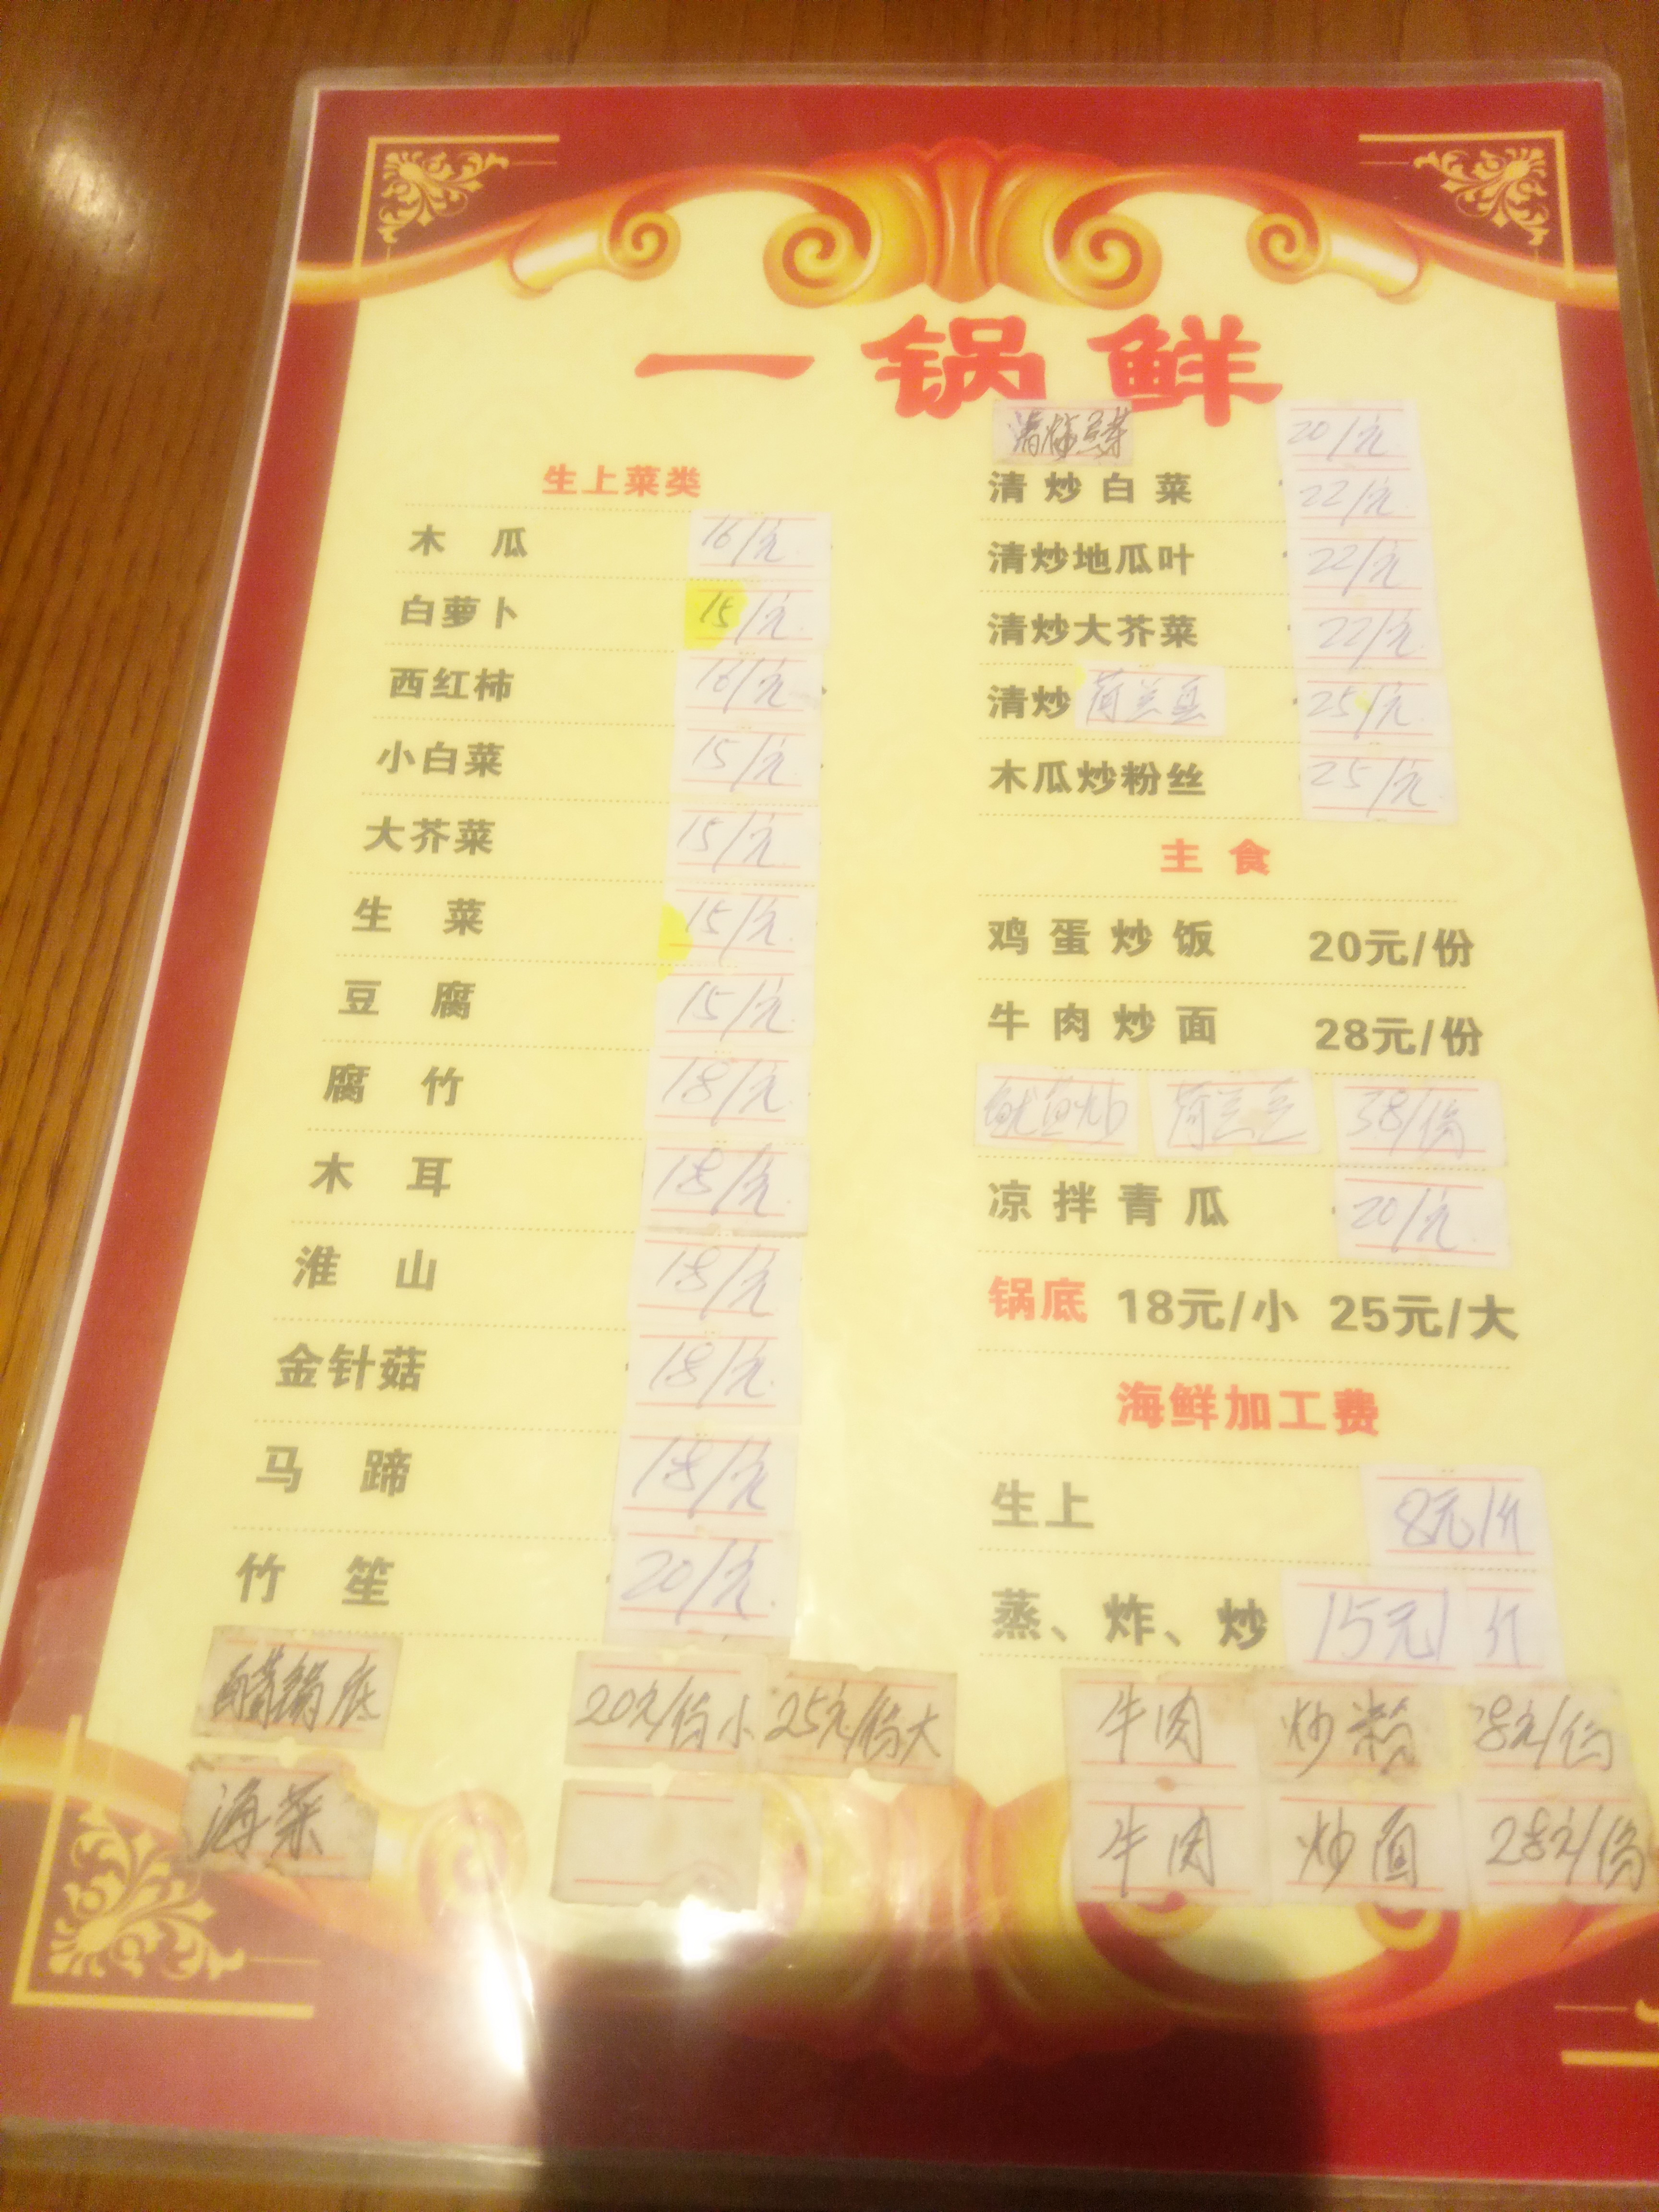 一锅鲜
生上菜类
木瓜 16/元
白萝卜 15/元
西红柿 16/元
小白菜 15/元
大芥菜 15/元
生菜 15/元
豆腐 15/元
腐竹 18/元
木耳 18/元
淮山 18/元
金针菇 18/元
马蹄 18/元
竹笙 20/元
醋锅底 20元/份小 25元/份大
海菜
清炒豆芽 20/元
清炒白菜 22/元
清炒地瓜叶 22/元
清炒大芥菜 22/元
清炒荷兰豆 25/元
木瓜炒粉丝 25/元
主食
鸡蛋炒饭 20元/份
牛肉炒面 28元/份
鱿鱼炒 荷兰豆 38/份
凉拌青瓜 20/元
锅底 18元/小 25元/大
海鲜加工费
生上 8元/斤
蒸、炸、炒 15元/斤
牛肉 炒粉 28元/份
牛肉 炒面 28元/份